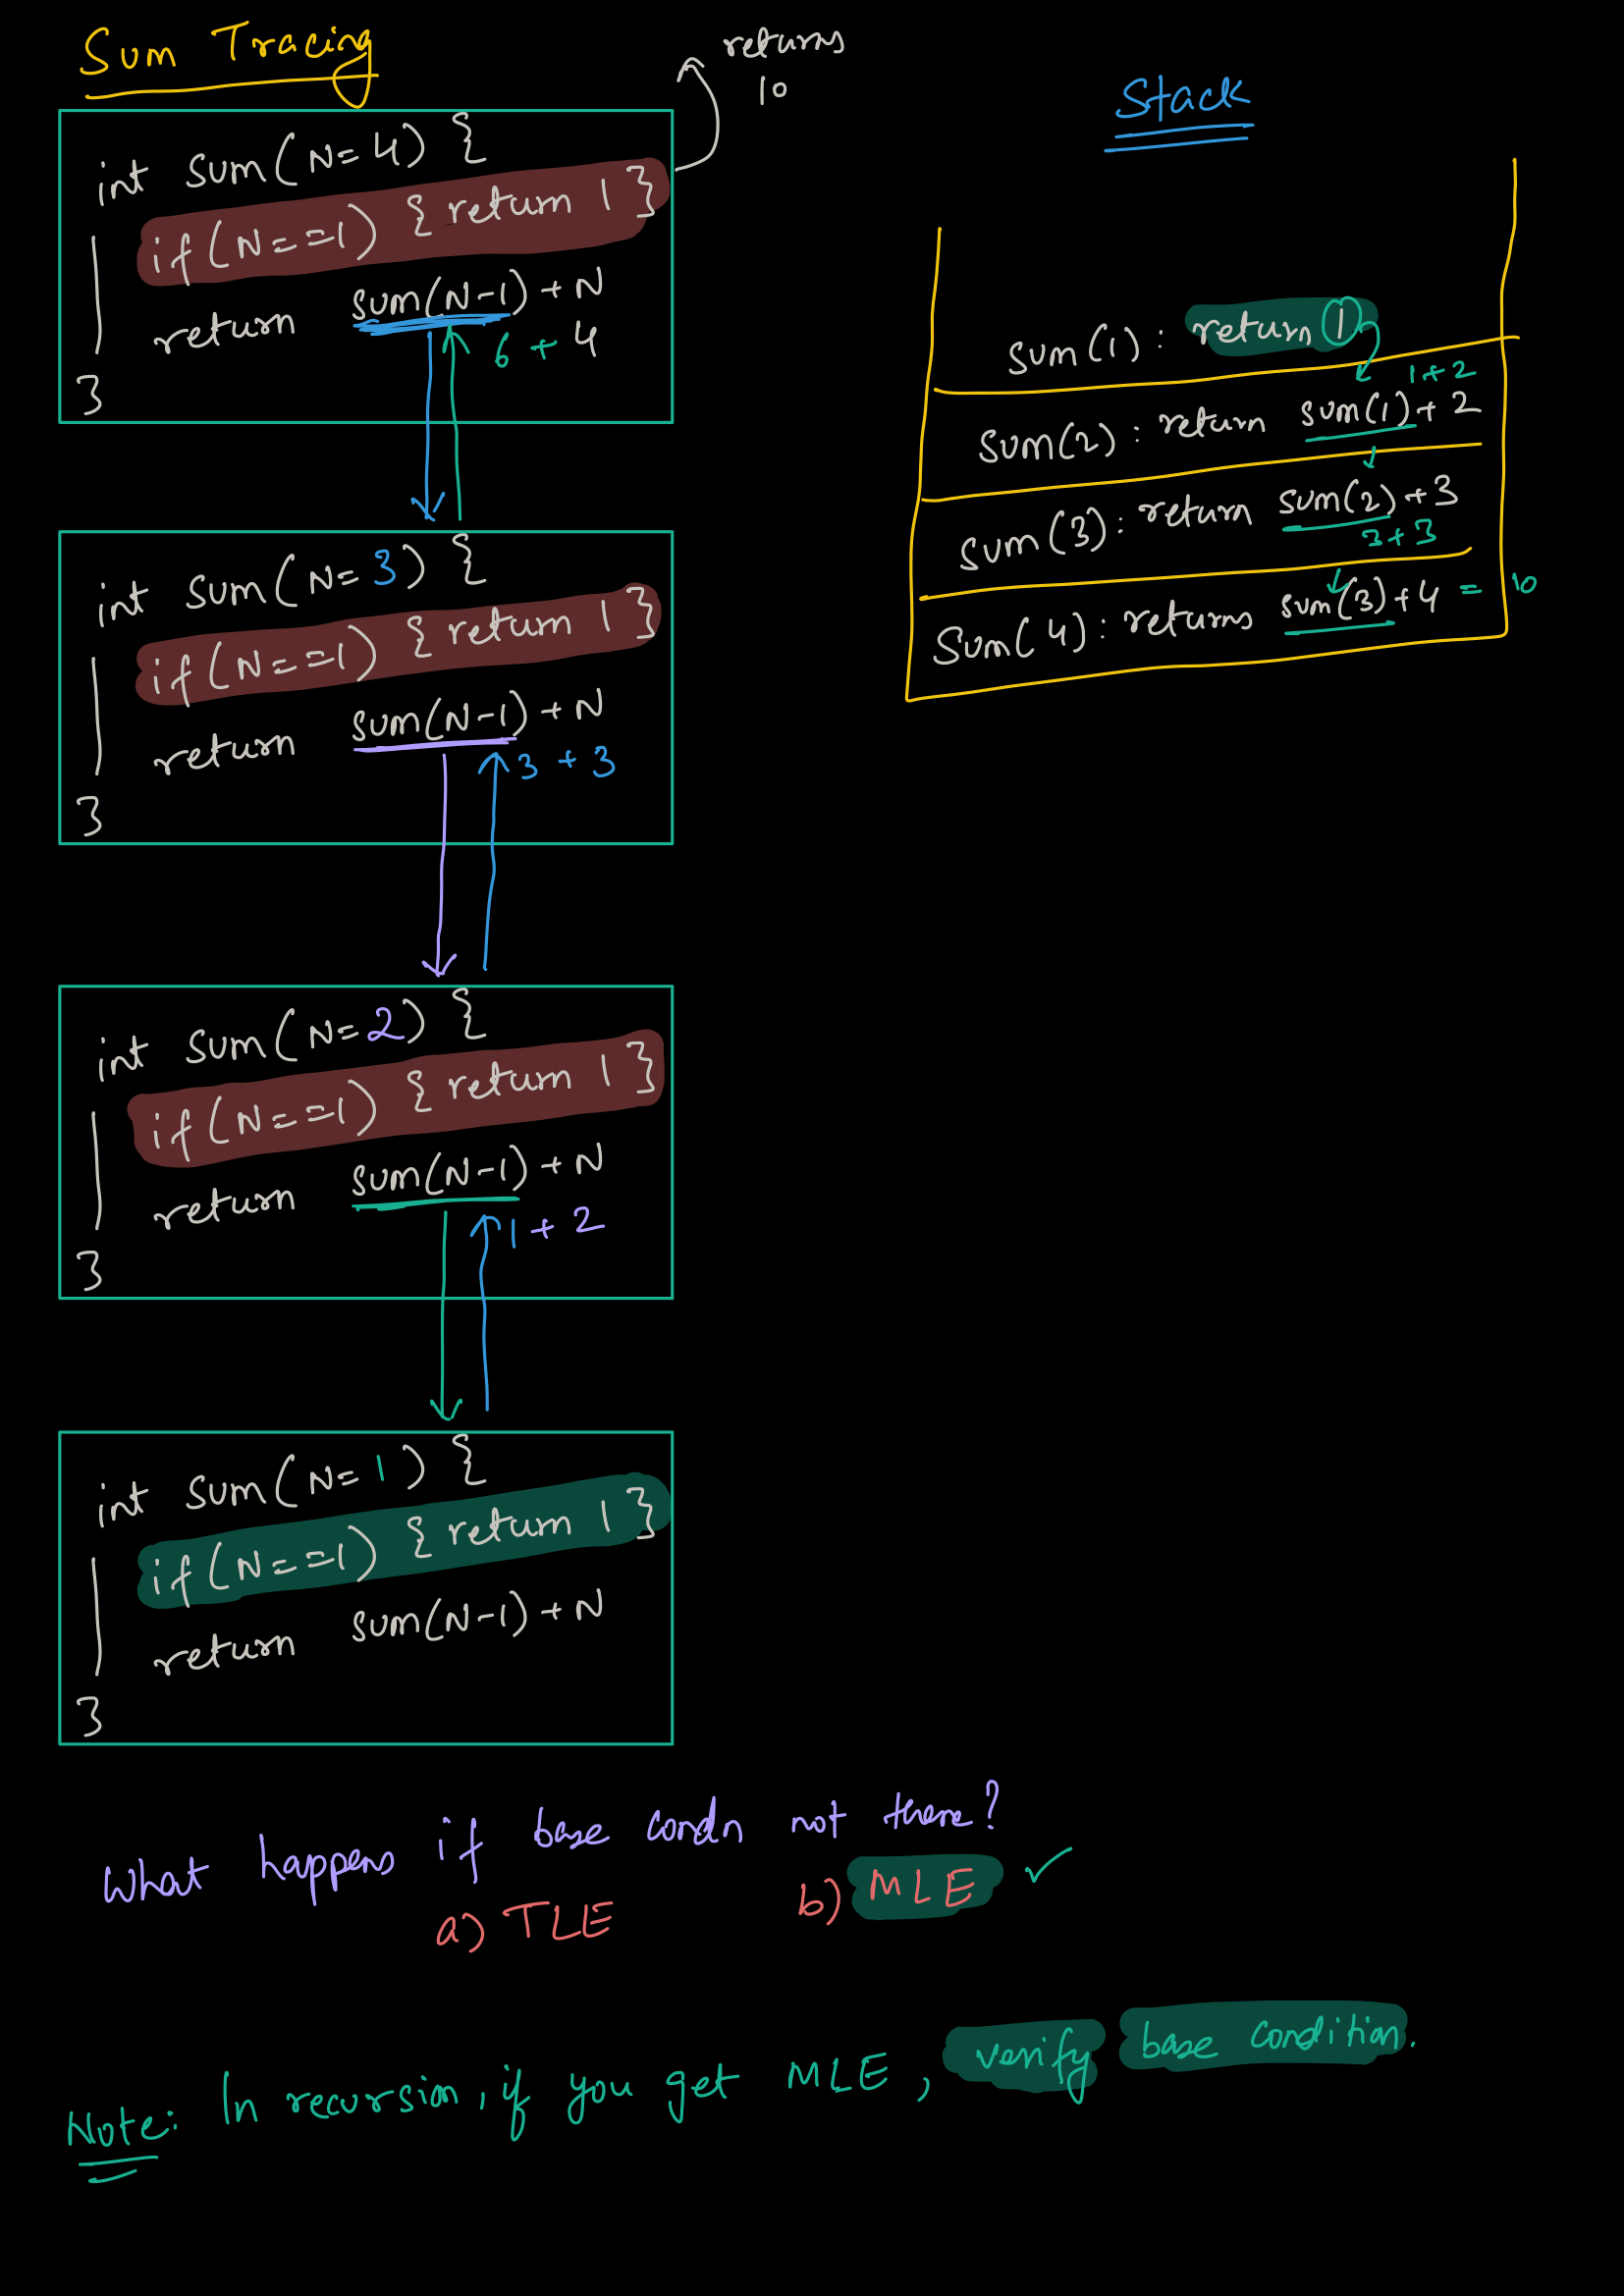 Sum Tracing
returns
10
int sum(N=4) {
if(N==1) { return 1 }
return sum(N-1) + N
6 + 4
}
int sum(N=3) {
if(N==1) { return 1 }
return sum(N-1) + N
3 + 3
}
int sum(N=2) {
if(N==1) { return 1 }
return sum(N-1) + N
1 + 2
}
int sum(N=1) {
if(N==1) { return 1 }
return sum(N-1) + N
}
Stack
sum(1) : return 1
1+2
sum(2) : return sum(1)+2
sum(3) : return sum(2)+3
3+3
sum(4) : returns sum(3)+4 = 10
What happens if base condn not there?
a) TLE b) MLE ✓
Note: In recursion, if you get MLE, verify base condition.